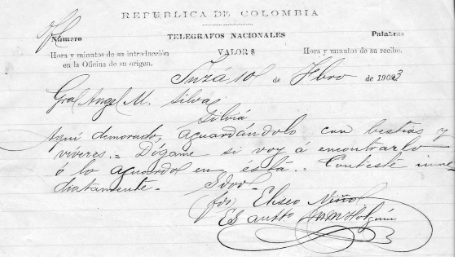 REPUBLICA DE COLOMBIA
TELEGRAFOS NACIONALES
Número VALOR $ Palabras
Hora y minutos de su introducción
en la Oficina de su origen.
Hora y minutos de su recibo.
Inzá 10 de Fbro de 1903
Gral Angel M. Silva
Silvia
Aquí demorado, aguardándolo con bestias y
víveres.. Dígame si voy á encontrarlo
ó lo aguardo en ésta.. Conteste inme
diatamente.
Sdor
Eliseo Niño
Es aucto